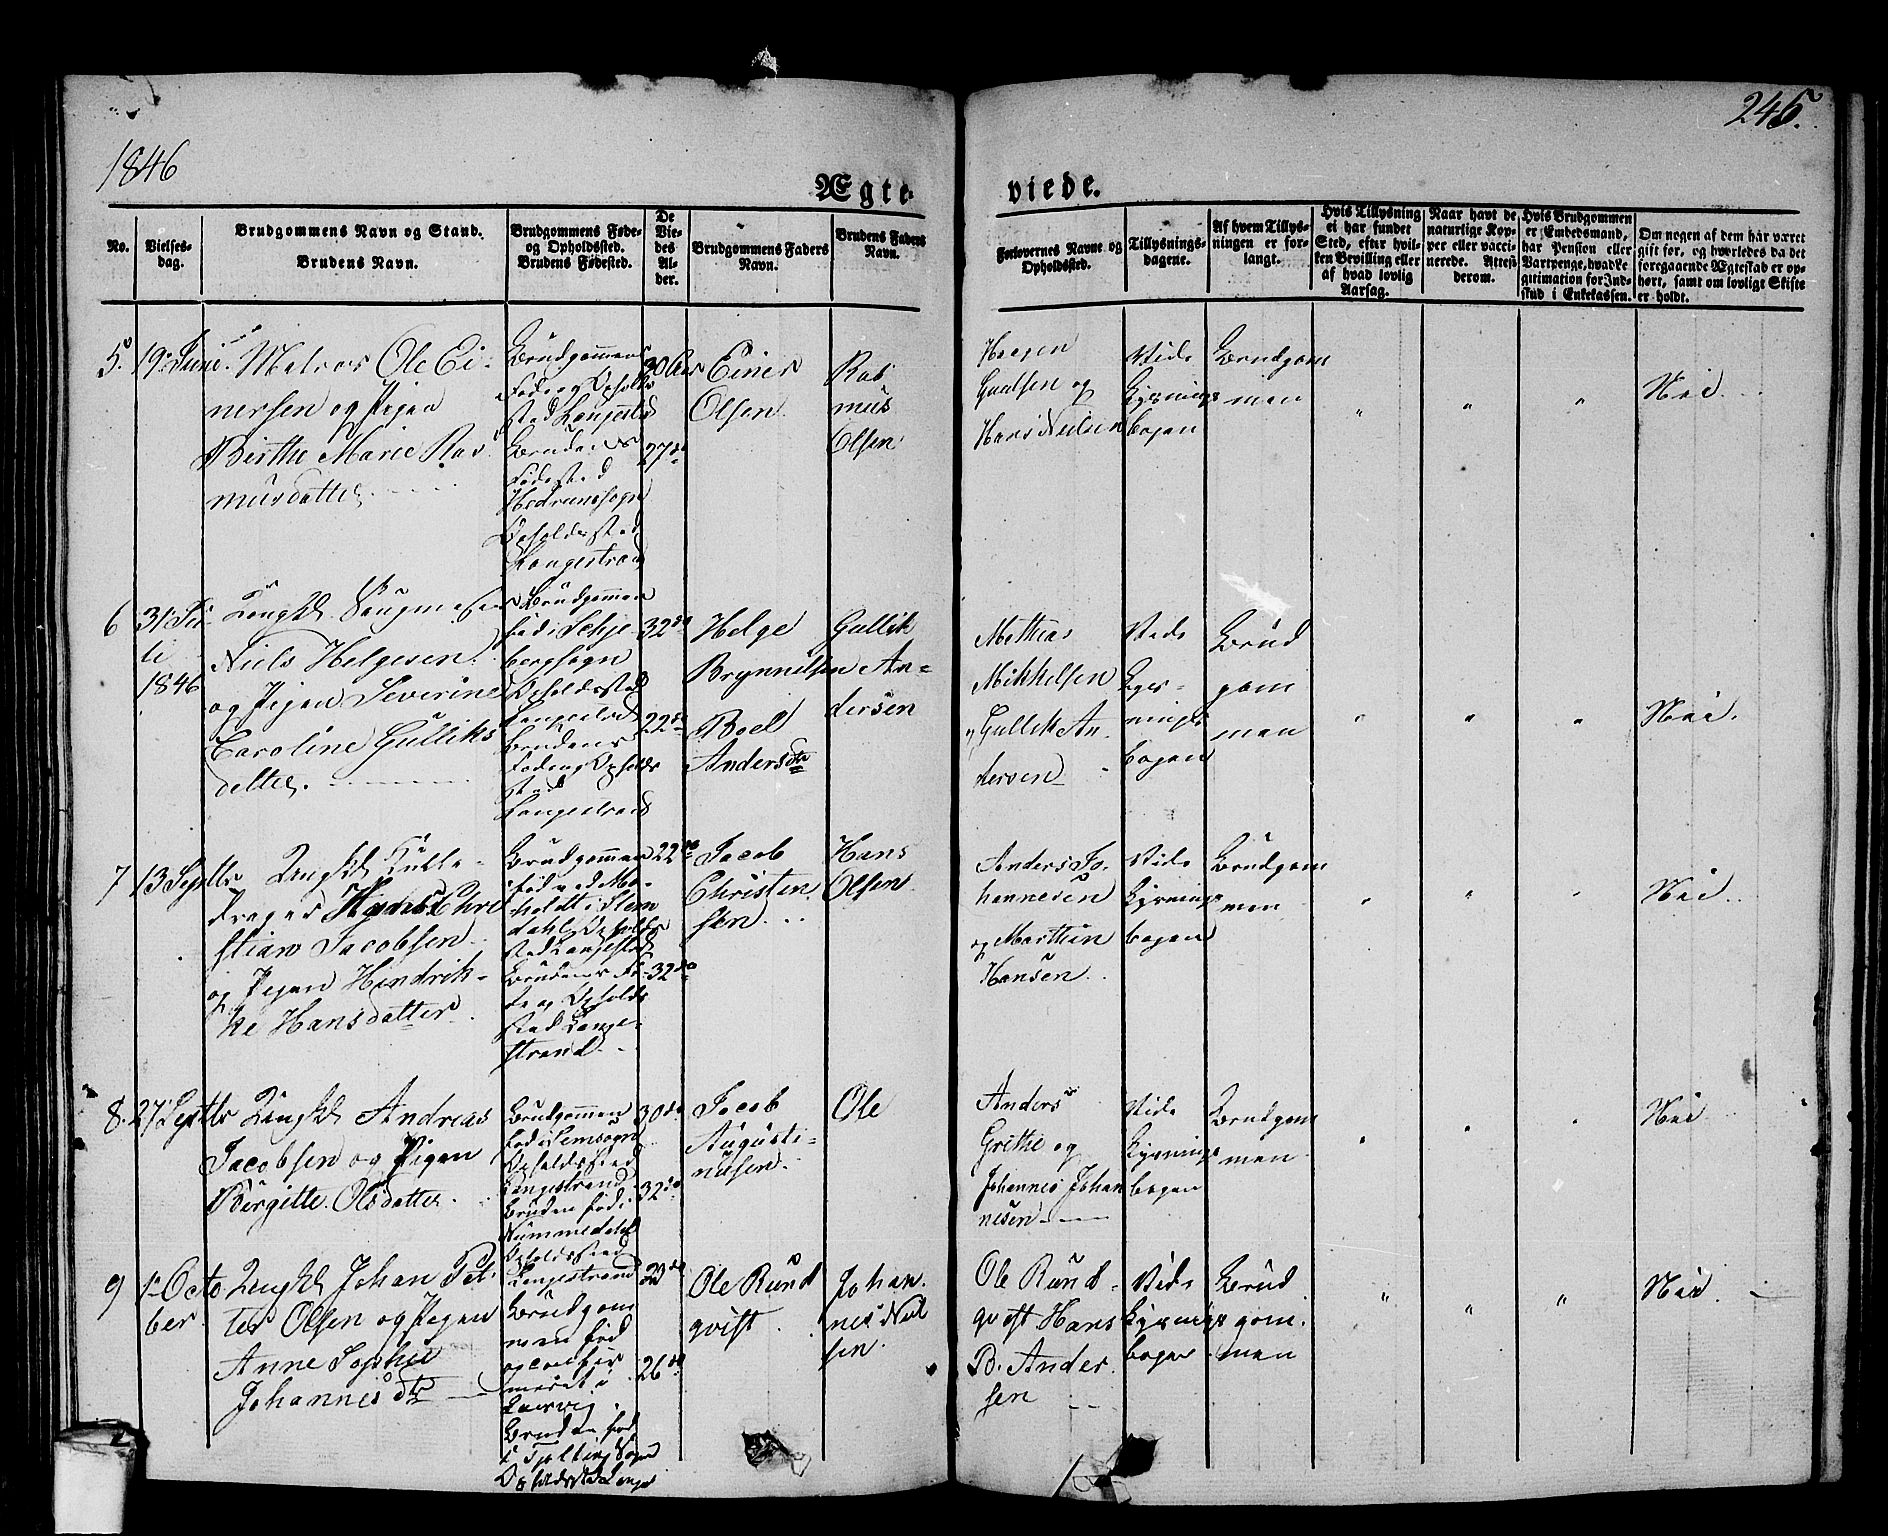 1846
245.
Ægte
viede.
No.
Vielses-
dag.
Brudgommens Navn og Stand.
Brudens Navn.
Brudgommens Føde-
og Opholdssted.
Brudens Fødested.
De
Vie-
des
Al-
der.
Brudgommens Faders
Navn.
Brudens Faders
Navn.
Forlovernes Navne og
Opholdssted.
Tillysnings-
dagene.
Af hvem Tillys-
ningen er for-
langt.
Hvis Tillysning
ei har fundet
Sted, efter hvil-
ken Bevilling eller
af hvad lovlig
Aarsag.
Naar havt de
naturlige Kop-
per eller vacci-
nerede. Attest
derom.
Hvis Brudgommen
er Embedsmand,
har Pension eller
Vartpenge, hvad Le-
gitimation for Ind-
skud i Enkekassen.
Om nogen af dem har været
gift før, og hvorledes da det
foregaaende Ægteskab er op-
hørt, samt om lovligt Skifte
er holdt.
5.
19. Juni.
Matros Ole Ei-
nersen og Pigen
Birthe Marie Ras
musdatter
Brudgommens
Føde og Opholds
sted Langestrd
Brudens
Fødested
Hedrum sogn
Opholdssted
Langestrand
30 Aar
27 do
Einer
Olsen
Ras
mus
Olsen
Haagen
Gulsen og
Hans Nielsen
Vide
Lysnings
bogen
Brudgom
men
"
"
"
Nei
6
31 Ju-
li
1846
Niels Helgesen
og Pigen Severine
Caroline Gulliks
datter.
Brudgommen
fød i Schje
bergsogn
Opholdssted
Langestrd
Brudens
Føde og Opholds
sted
Langestrand
32 do
22 do
Helge
Brynnilsen
Boel
Anders dtr
Gullik
An-
dersen
Mathias
Mikkelsen
" Gullik An
dersen
Vide
Lys-
nings
bogen
Brud
gom
men
"
"
"
Nei.
7
13 Septbr
Ungkl
Christian Jacobsen
og Pigen Hendrik-
ke Hansdatter
Brudgommen
Opholds
sted Langestrd
Brudens Fø-
de og Opholds
sted Lange-
strand
22 do
32 do
Jacob
Christen
sen
Hans
Olsen
Anders Jo-
hannesen
og Marthin
Hansen
Vide
Lysnings
bogen
Brudgom
men
"
"
"
Nei
8.
27 Septbr
Ungkl Andreas
Jacobsen og Pigen
Birgitte Olsdatter
Brudgommen
fød i Semsogn
Opholdssted
Langestrand
Bruden fød i
Nummedahl
Opholdssted
Langestrand
30 do
32 do
Jacob
Augusti-
nusen
Ole
Anders
Grithe og
Johannes Johan
nesen
Vide
Lysnings
bogen
Brudgom
men
"
"
"
Nei
9
1 Octo
ber
Ungkl Johan Pet-
ter Olsen og Pigen
Anne Sophie
Johannes dtr
Brudgom
men fød
og confir
meret i
Laurvig
Bruden fød
i Tjølling Sogn
Opholdssted Langes
23 do
26 do
Ole Rund
qvist
Johan
nes Niel
sen
Ole Rund-
qvist Hans
B. Ander
sen
Vide
Lysnings
bogen
Brud
gom.
men
"
"
"
Nei